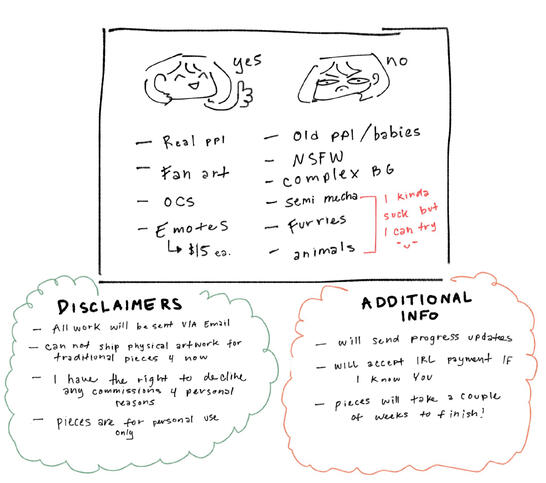 yes
- Real ppl
- Fan art
- OCS
- Emotes
$15 ea.
no
- Old ppl/babies
- NSFW
- complex BG
- semi mecha
- Furries
- animals
I kinda
suck but
I can try
DISCLAIMERS
- All work will be sent VIA Email
- can not ship physical artwork for
traditional pieces 4 now
- I have the right to decline
any commissions 4 personal
reasons
- pieces are for personal use
only
ADDITIONAL
INFO
- will send progress updates
- will accept IRL payment IF
I know You
- pieces will take a couple
of weeks to finish!